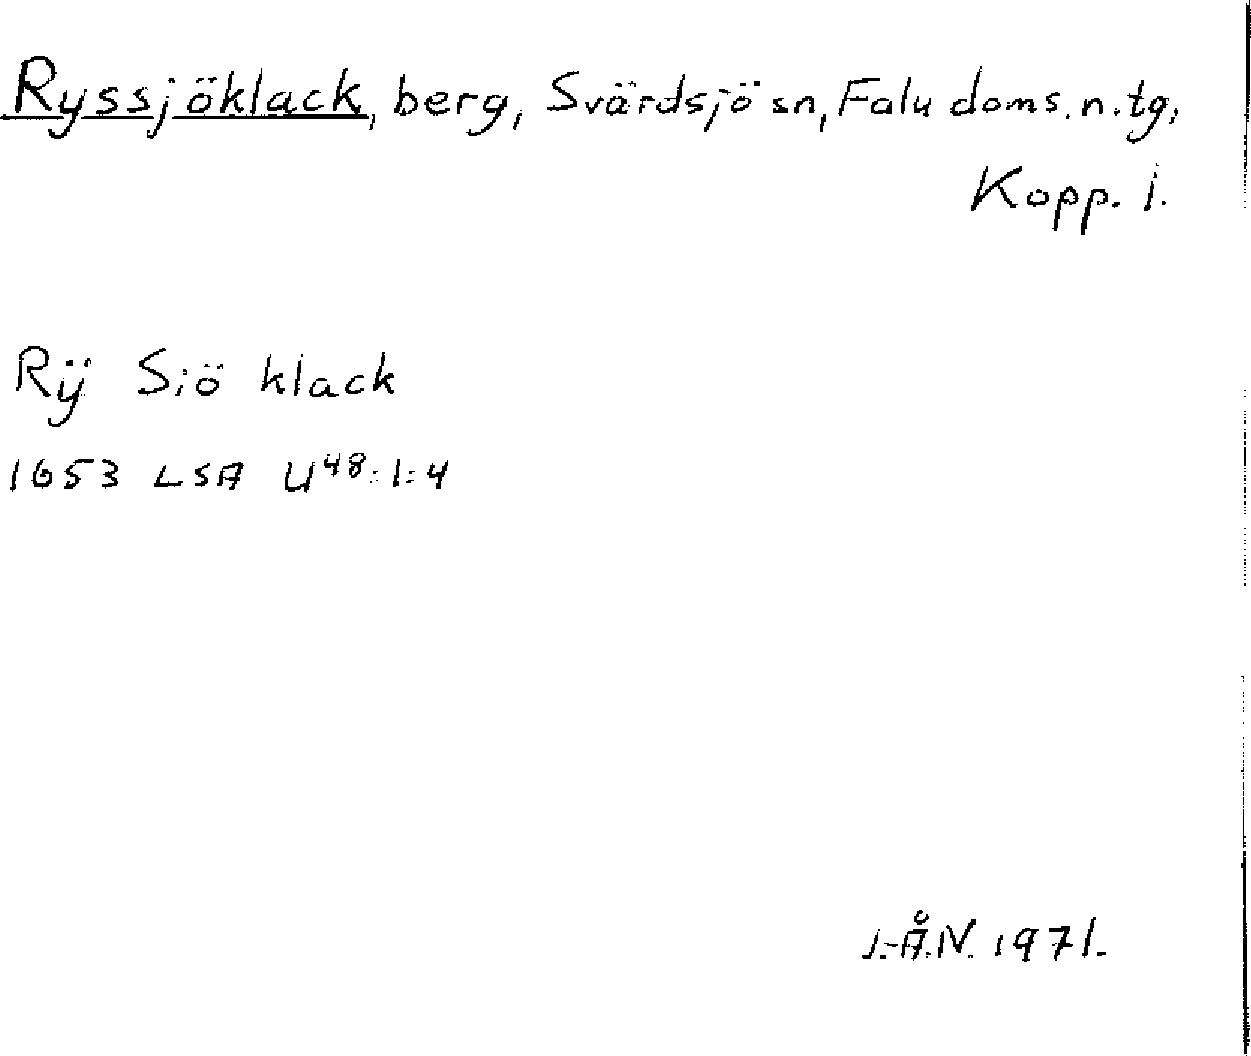 Ryssjöklack, berg, Svärdsjö sn, Falu doms. n. tg,
Kopp. l.
Rÿ Siö klack
1653 LSA U48:1:4
J.-Å.N. 1971.